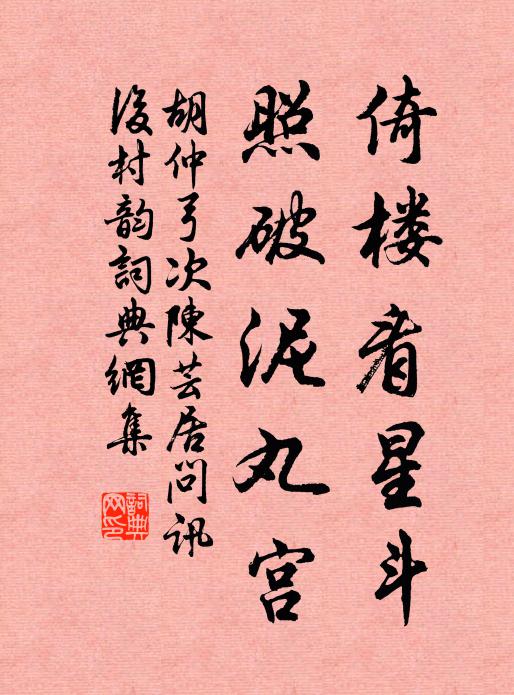 倚楼看星斗
照破泥丸宫
胡仲弓次陳芸居问讯
後村韵詞典網集
詞典网印